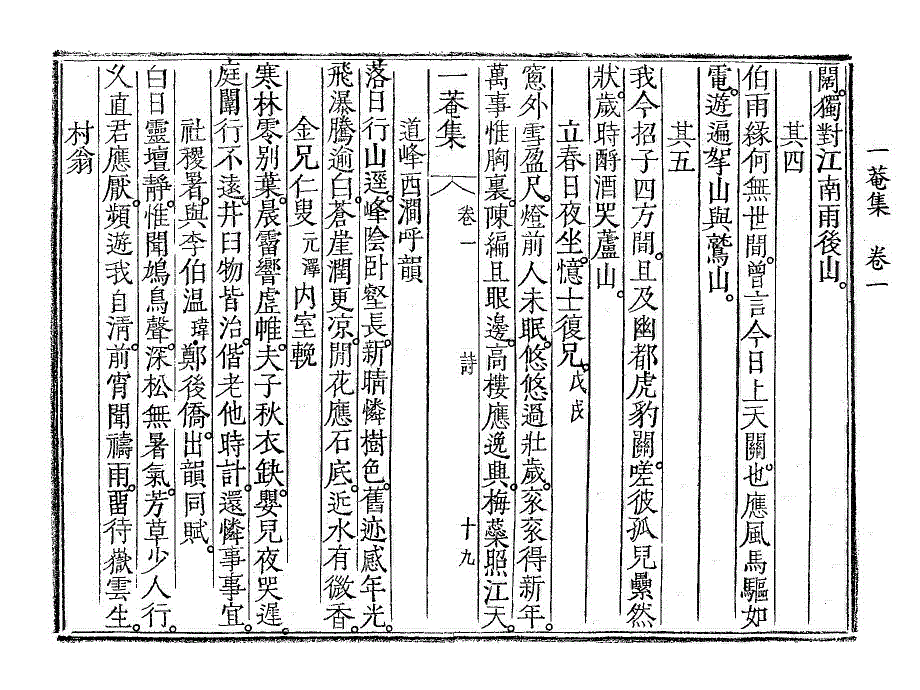 一菴集　卷一
闌。獨對江南雨後山。
其四
伯雨緣何無世間。曾言今日上天關。也應風馬驅如
電。遊遍挐山與鷲山。
其五
我今招子四方間。且及幽都虎豹關。嗟彼孤兒纍然
狀。歲時酹酒哭蘆山。
立春日夜坐。憶士復兄。戊戌
窓外雪盈尺。燈前人未眠。悠悠過壯歲。袞袞得新年。
萬事惟胸裏。陳編且眼邊。高樓應逸興。梅藥照江天。
一菴集　卷一　詩　十九
道峰西澗呼韻
落日行山逕。峰陰卧壑長。新晴憐樹色。舊迹感年光。
飛瀑騰逾白。蒼崖潤更凉。閒花應石底。近水有微香。
金兄仁叟元澤內室輓
寒林零别葉。晨霤響虛帷。夫子秋衣缺。嬰兒夜哭遲。
庭闈行不遠。井臼物皆治。偕老他時計。還憐事事宜。
社稷署。與李伯溫瑋,鄭後僑。出韻同賦。
白日靈壇靜。惟聞鳩鳥聲。深松無暑氣。芳草少人行。
久直君應厭。頻遊我自淸。前宵聞禱雨。留待嶽雲生。
村翁